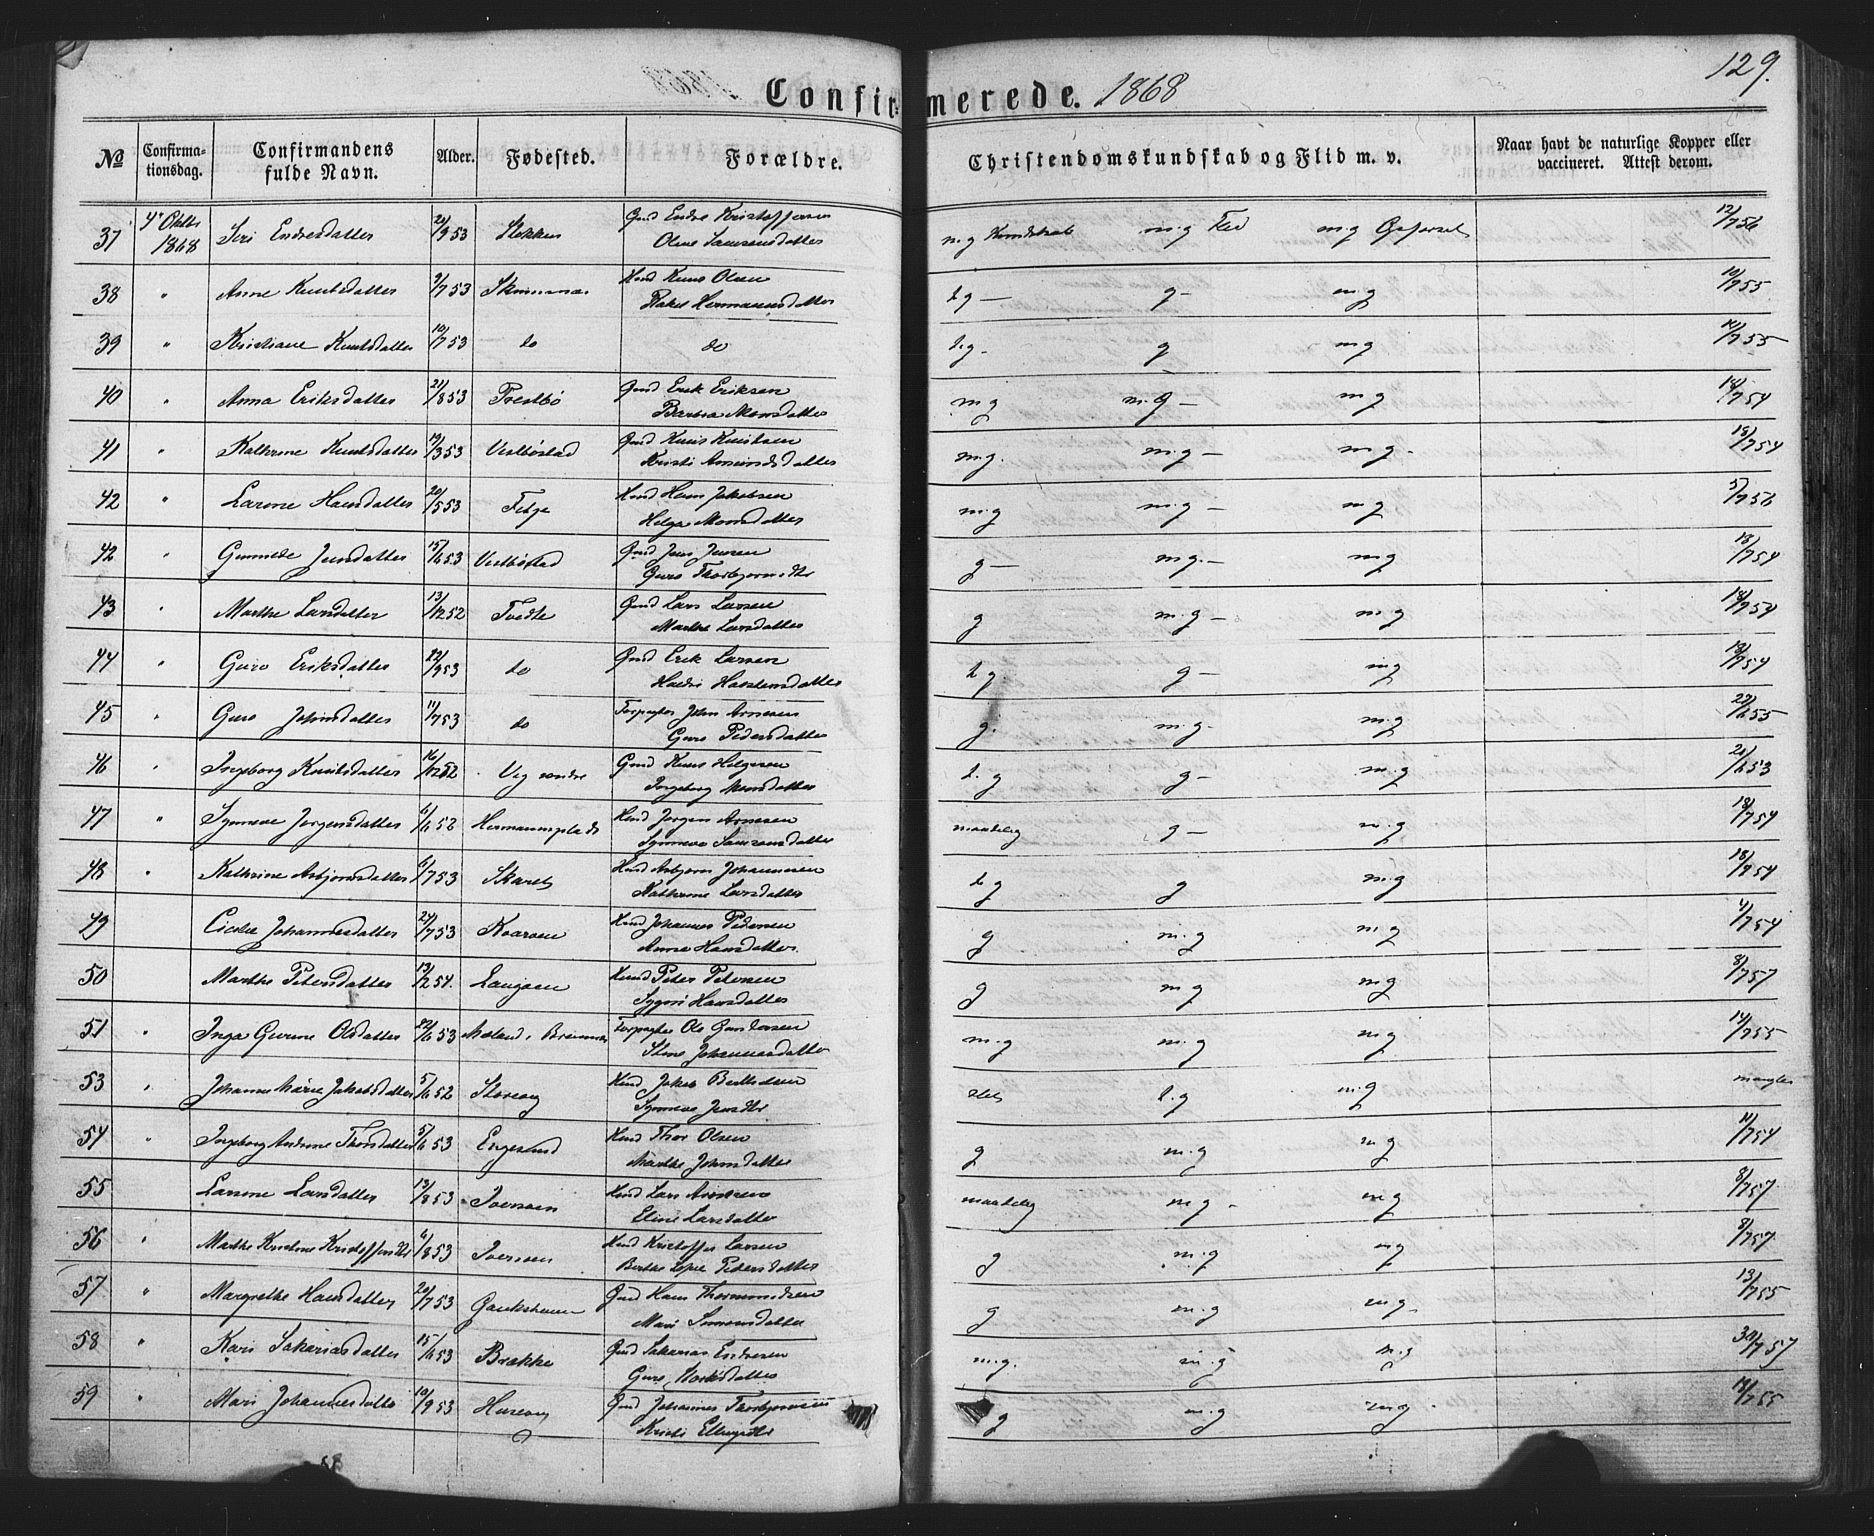 129.
Confirmerede. 1868
No Confirmationsdag. Confirmandens fulde Navn. Alder. Fødested. Forældre. Christendomskundskab og Flid m. v. Naar havt de naturlige Kopper eller vaccineret. Attest derom.
37 4 Oktbr 1868 Siri Endresdatter 2/9 53 Stokken Gmd Endre Kristoffersen m.g Kundskab m.g Flid m.g Opførsel 12/7 56
Oline Samsonsdatter
38 " Anne Knutsdatter /7 53 Hmd Knut Olsen t g — g — m g 10/7 55
Rakel Hermannsdatter
39 " Kristiane Knutsdatter 10/7 53 do do t.g. g m g 11/7 55
40 " Anna Eriksdatter 21/8 53 Trestbø Gmd Erik Eriksen m g m.g — m g 18/7 54
Barbra Monsdatter
41 " Kathrine Knutsdatter 19/3 53 Vestbøstad Gmd Knut Knutsen m.g. m.g — m.g. 18/7 54
Kristi Amundsdatter
42 " Larine Hansdatter 20/5 53 Fitje Hmd Hans Jakobsen m.g m.g — m g 5/7 56
Helga Monsdatter
42 " Gunnilde Jensdatter 15/6 53 Vestbøstad Gmd Jens Jensen g — m.g. — m g 18/7 54
Guro Thorbjørnsdtr
43 " Marthe Larsdatter 13/12 52 Tvedte Gmd Lars Larsen g m.g — m.g 18/7 54
Marthe Larsdatter
44 " Guro Eriksdatter 22/9 53 do Gmd Erik Larsen t g. g — m g 18/7 54
45 " Guro Johnsdatter 11/7 53 do Forpagter John Arnesen g. m.g. m.g 22/6 55
Guro Pedersdatter
46 " Ingeborg Knutsdatter 16/12 52 Vig søndre Gmd Knut Helgesen t. g g — m.g 21/6 53
Ingeborg Monsdatter
47 " Synneve Jørgensdatter 6/6 52 Hermannsplads Hmd Jørgen Arnesen maadelig g — m.g 18/7 54
Synneve Samsonsdatter
48 " Kathrine Asbjørnsdatter 6/7 53 Hmd Asbjørn Johannesen t g g m.g 18/7 54
Kathrine Larsdatter
49 " Johannesdatter 24/7 53 Kvarven Hmd Johannes Pedersen g m.g m g 4/7 54
Anne Hansdatter.
50 Marthe Petersdatter 13/2 54. Langøen Hmd Peter Petersen g m g m g 8/7 57
Hansdatter
51 " Inga Gurine Olsdatter 22/6 53 Mæland i Bremnæs Forpagter Ole Gundersen m.g m.g m.g 14/7 55
Stine Johannesdatter
53 " Johanne Marie Jakobsdatter 5/6 52 Storeøy Hmd Jakob Bertelsen slet t.g m.g mangler
Synneve Jensdtr
54 " Ingeborg Andrine Thorsdatter 5/6 53 Engesund Hmd Thor Olsen g m.g m g 11/7 54
Marthe Johnsdatter
55 Larine Larsdatter 13/8 53 Iversøen Hmd Lars Arnesen maadelig m g. m g 8/7 57
Eline Larsdatter
56 " Marthe Kristine Kristoffersdtr 6/8 53 Iversøen Hmd Kristoffer Larsen g m.g m g 8/7 57
Berthe Pedersdatter
57 " Margrethe Hansdatter 20/7 53 Gaukshavn Gmd Hans Thormodsen g m.g m g. 13/7 55
Mari Simonsdatter
58 " Kari Sakariasdatter 15/6 53 Brække Gmd Sakarias Endresen m.g. m.g m.g 30/7 57
Guro
59 " Mari Johannesdatter 10/9 53 Huseøy Gmd Johannes Thorbjørnsen g m.g m g 12/7 55
Kristi